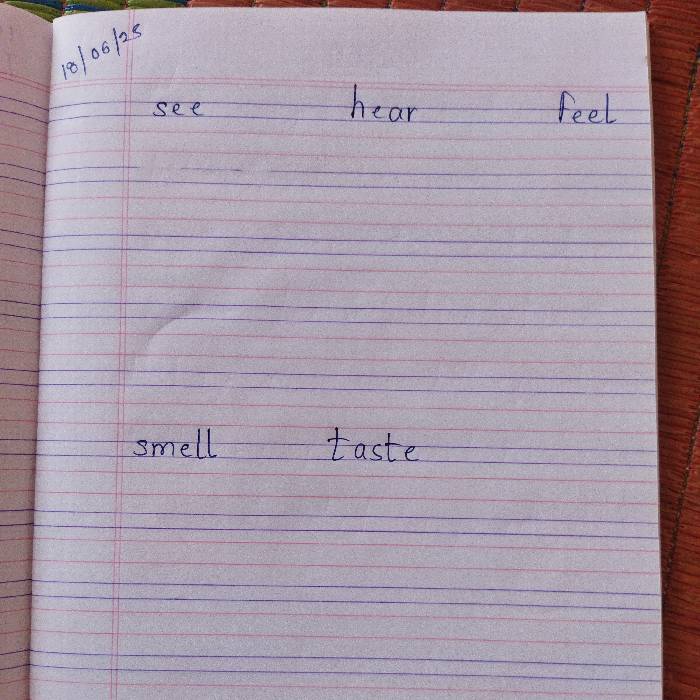 18/06/25
see hear feel
smell taste